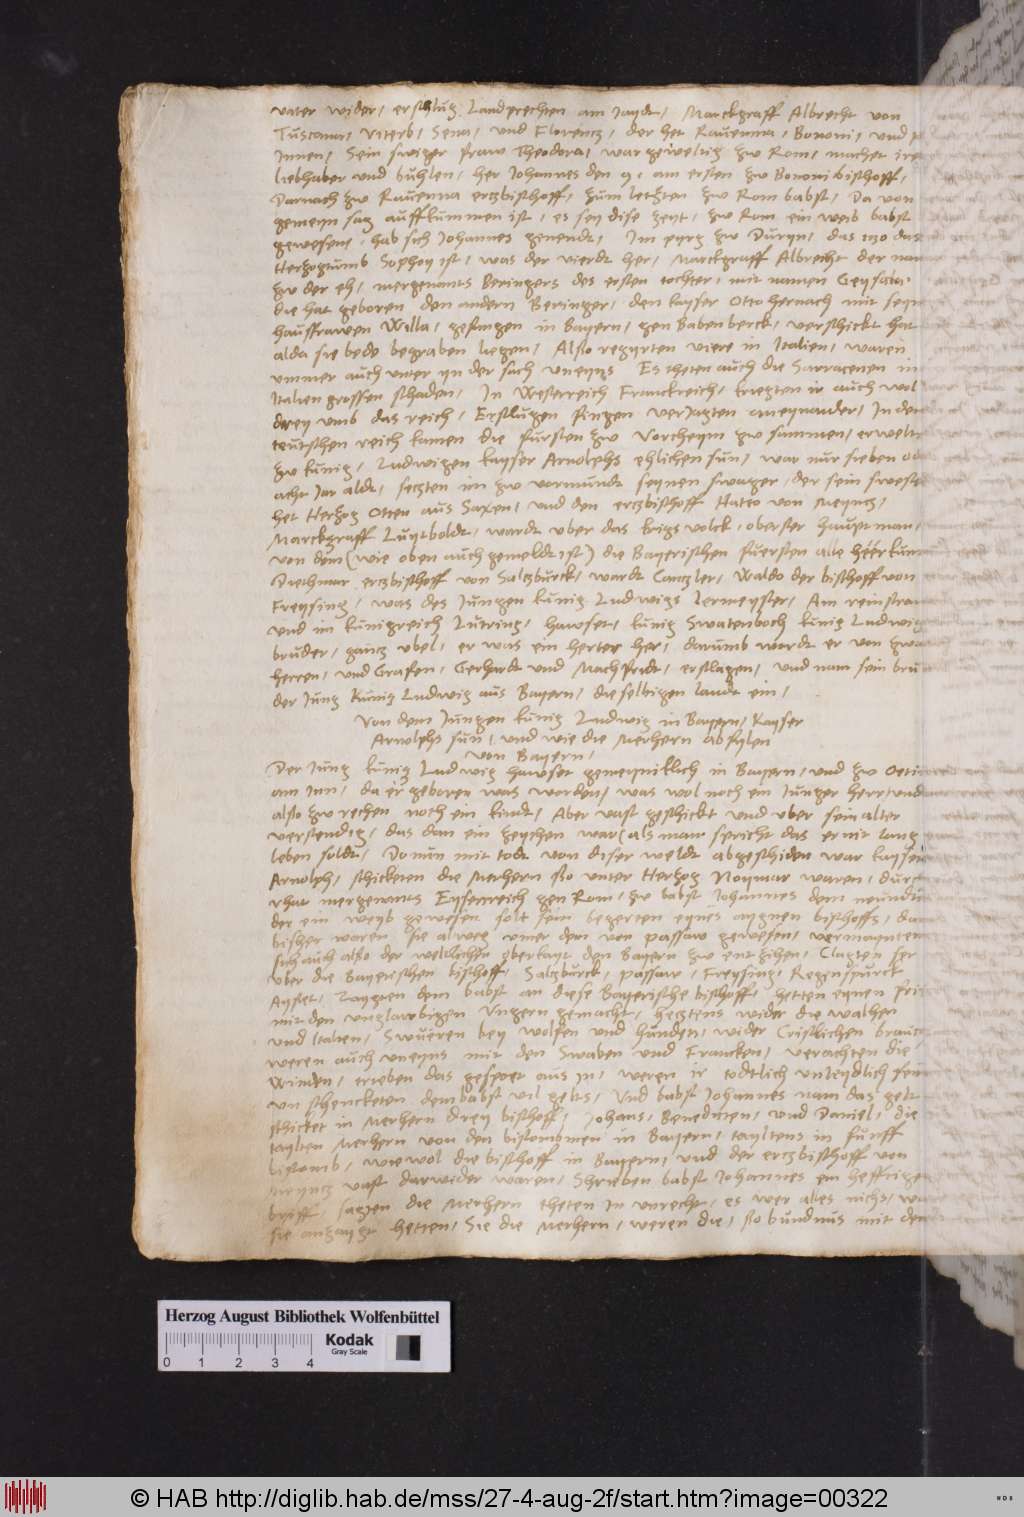 vater wider / erschlug Landprechten am Jaydt / Marckgraff Albrecht von
Tuscana / Viterb / Sena / und Florentz / der het Rauenna / Bononi / und
Innen / Sein swiger fraw Theodora / war geweltig zw Rom / machet ire
liebhaber und buhlen / her Johannes den 9. am ersten zw Bononi bischoff /
Darnach zw Rauenna ertzbischoff / zum letzten zw Rom babst / Da von
gemeyn sag auffkummen ist / es sey dise zeyt / zw Rom ein weib babst
gewesenn / hab sich Johannes genendt / Im pyrg zw Duryn / das itzo das
Hertzogtumb Sophoy ist / was der vierdt her / Marckgraff Albrecht der nam
zw der eh / mergenants Beringers des ersten tochter / mit namen Geysala
die hat geboren den andern Beringer / den kayser Otto hernach mit seyn
hauffrawen Willa / gefangen in Bayern / gen Babenberck / verschickt hat
alda sie bede begraben liegen / Also regyrten viere in Italien / waren
ymmer auch unter yn der sach uneyns Es theten auch die Sarracenen in
Italien grossen schaden / In Westerreich Franckreich / kriegten ir auch wol
drey umb das reich / Erslugen fingen verjagten aneynander / In den
teutschen reich kamen die fursten zw Vorcheym zw sammen / erwelten
zw kunig / Ludwigen kayser Arnolphs ehlichen sun / war nur sieben od
acht Jar aldt / setzten im zw vormundt seynen swager / der sein swester
het Hertzog Otten aus Saxen / und den ertzbischoff Hatto von Meyntz /
Marckgraff Luytboldt / wardt uber das krigs volck / oberster hauptman /
von dem (wie oben auch gemeldt ist) die Bayerischen fuersten alle heer kum
Diethmar ertzbischoff von Saltzburck / wardt Cantzler / Waldo der bischoff von
Freysing / was des Jungen kunig Ludwigs lermeyster / Am reinstram
und im kunigreich Lutring / hawset / kunig Swatenboch kunig Ludwig
bruder / gantz ubel / er was ein herter her / darumb wardt er von zwa
herren / und Grafen / Gerhardt und Machfridt / erslagen / und nam sein bru
der Jung Kunig Ludwig aus Bayern / dieselbigen landt ein /
Von dem Jungen kunig Ludwig in Bayern / Kayser
Arnolphs sun / und wie die Merhern abfylen
von Bayern /
Der Jung kunig Ludwig hawset gemeyniklich in Bayern / und zw Oeting
am Inn / da er geboren was worden / was wol noch ein Junger herr / und
also zw rechen noch ein kindt / Aber vast geschickt und uber sein alter
verstendig / das dan ein zeychen war (als man spricht das er nit lang
leben soldt / Do nun mit todt von diser weldt abgeschiden war kayser
Arnolph / schicketen die Merhern so unter Hertzog Moymar waren / durch
rhat mergenants Eysenreich gen Rom / zw babst Johannes dem neundten
der ein weyb gewesen solt sein begerten eynes aygnen bischoffs / dan
bisher waren sie alweg unter dem von passaw gewesen / vermaynten
sich auch also der weltlichen oberkayt den Bayern zw entzihen / Clagten ser
uber die Bayerischen bischoff / Saltzburck / passaw / Freysing / Regenspurck
Aystet / zaygten dem babst an diese Bayerische bischoff / hetten eynen frid
mit den unglawbigen Ungern gemacht / hetztens wider die walhen
und Italien / Swueren bey wolfen und hunden / wider Cristlichen brauch
weren auch uneyns mit den Swaben und Francken / verachten die
Winden / trieben das gespoet aus In / weren ir todtlich unleydlich fein
un schencketen dem babst vil gelts / Und babst Johannes nam das gelt
schicket in Merhern drey bischoff / Johans / Benedicten / und Daniel / die
taylten Merhern von den bistombmen in Bayern / tayltens in funff
bistomb / wiewol die bischoff in Bayern / und der ertzbischoff von
Meyntz vast darwider waren / Schrieben babst Johannes ein hefftigen
briff / sagten die Merhern theten In unrecht / es wer alles nichs / was
sie anzaygt hetten / Sie die Merhern / weren die / so bundnus mit den
Herzog August Bibliothek Wolfenbüttel
Kodak
Gray Scale
0 1 2 3 4
© HAB http://diglib.hab.de/mss/27-4-aug-2f/start.htm?image=00322